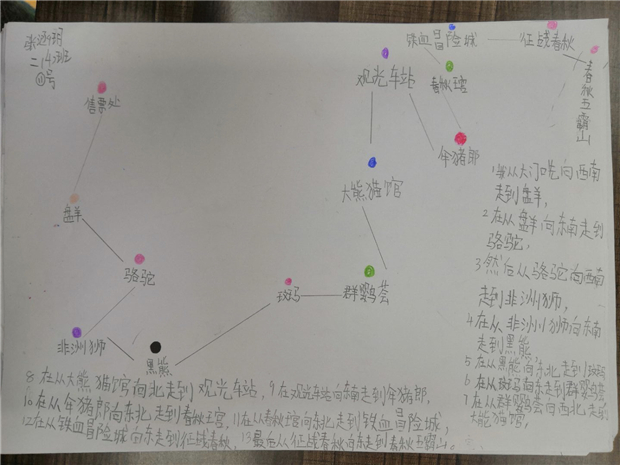 张
二(4)班
号
铁血冒险城
征战春秋
春秋五霸山
观光车站
春秋
售票处
年猪郎
大熊猫馆
盘羊
骆驼
斑马
群鹦荟
非洲狮
黑熊
1 从大门口向西南
走到盘羊,
2 在从盘羊向东南走到
骆驼,
3 然后从骆驼向西南
走到非洲狮,
4 在从非洲狮向东南
走到黑熊
5 在从黑熊向东北走到斑马
6 在从斑马向东走到群鹦荟
7 在从群鹦荟向西北走到
大熊猫馆,
8 在从大熊猫馆向北走到观光车站, 9 在观光车站向东南走到年猪郎,
10 在从年猪郎向东北走到春秋宫, 11 在从春秋宫向东北走到铁血冒险城,
12 在从铁血冒险城向东走到征战春秋, 13 最后从征战春秋向东走到春秋五霸山。